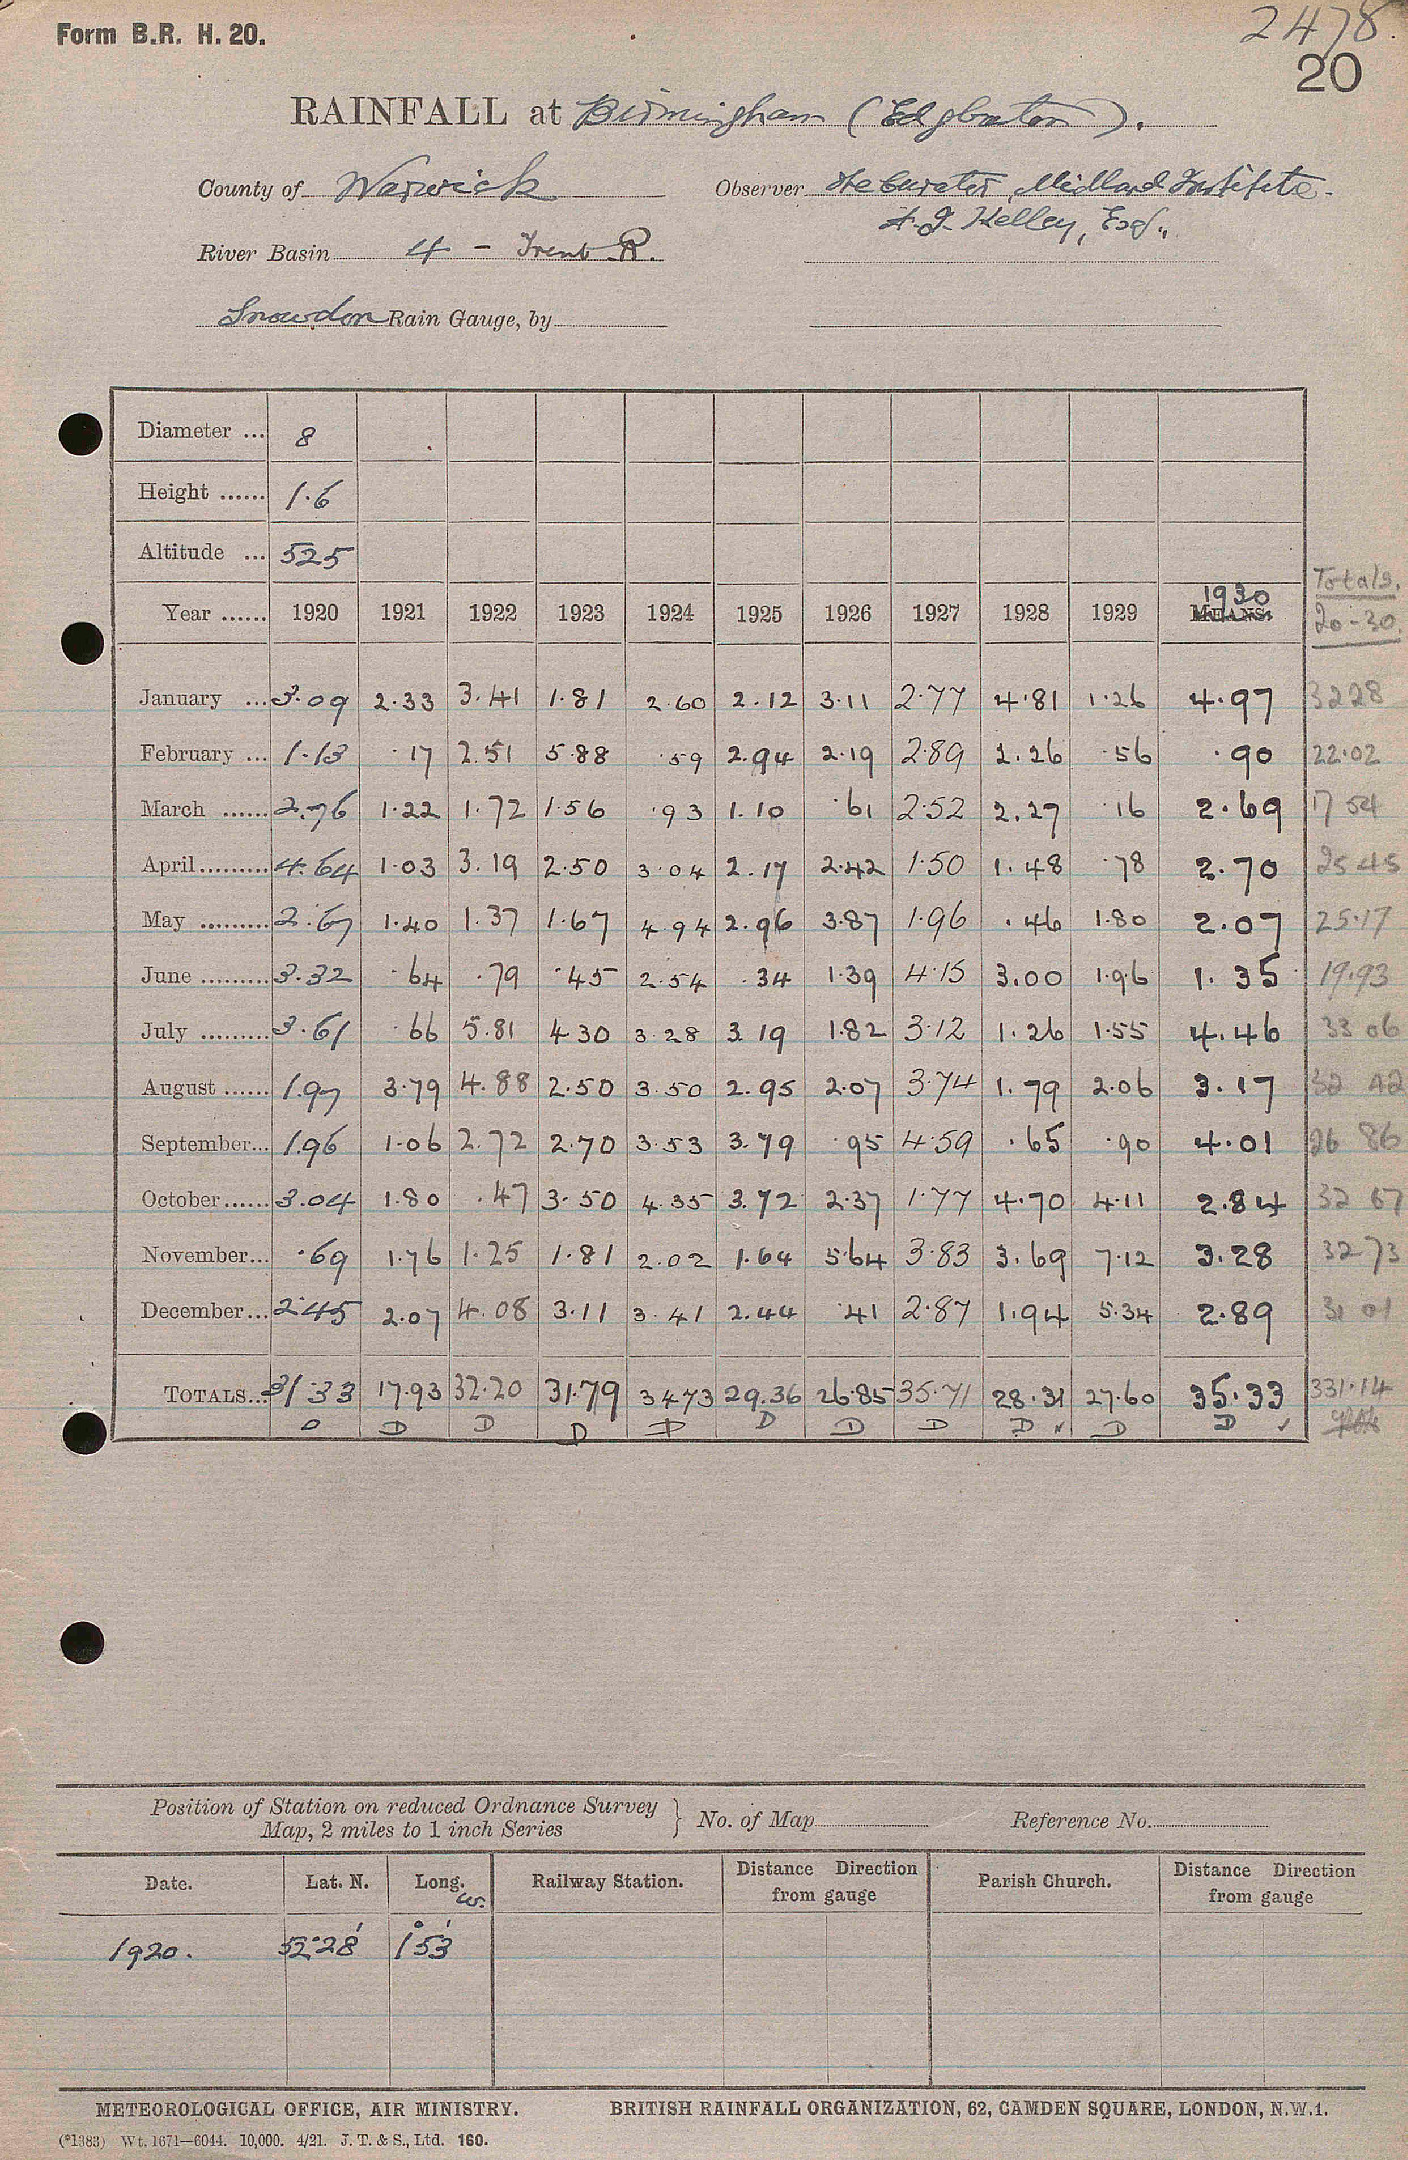 Form B.R. H. 20.
2478.
20
RAINFALL at Birmingham (Edgbaston).
County of Warwick Observer The Curator, Midland Institute.
A. J. Kelley, Esq.,
River Basin 4 - Trent R.
Snowdon Rain Gauge, by
Diameter ... 8
Height ...... 1.6
Altitude ... 525
Totals.
1930
Year ...... 1920 1921 1922 1923 1924 1925 1926 1927 1928 1929 MEANS. 20-30.
January ... 3.09 2.33 3.41 1.81 2.60 2.12 3.11 2.77 4.81 1.26 4.97 3228
February ... 1.13 .17 2.51 5.88 .59 2.94 2.19 2.89 2.26 .56 .90 22.02
March ...... 2.76 1.22 1.72 1.56 .93 1.10 .61 2.52 2.27 .16 2.69 17 54
April ......... 4.64 1.03 3.19 2.50 3.04 2.17 2.42 1.50 1.48 .78 2.70 25 45
May ......... 2.67 1.40 1.37 1.67 4.94 2.96 3.87 1.96 .46 1.80 2.07 25.17
June ......... 3.32 .64 .79 .45 2.54 .34 1.39 4.15 3.00 1.96 1.35 19.93
July ......... 3.61 .66 5.81 4.30 3.28 3.19 1.82 3.12 1.26 1.55 4.46 33 06
August ...... 1.97 3.79 4.88 2.50 3.50 2.95 2.07 3.74 1.79 2.06 3.17 32 42
September... 1.96 1.06 2.72 2.70 3.53 3.79 .95 4.59 .65 .90 4.01 26 86
October ...... 3.04 1.80 .47 3.50 4.35 3.72 2.37 1.77 4.70 4.11 2.84 32 67
November... .69 1.76 1.25 1.81 2.02 1.64 5.64 3.83 3.69 7.12 3.28 32 73
December... 2.45 2.07 4.08 3.11 3.41 2.44 .41 2.87 1.94 5.34 2.89 31 01
TOTALS... 31.33 17.93 32.20 31.79 34.73 29.36 26.85 35.71 28.31 27.60 35.33 331.14
D D D D D D D D D ✓ D D ✓
Position of Station on reduced Ordnance Survey
Map, 2 miles to 1 inch Series } No. of Map Reference No.
Date. Lat. N. Long. W. Railway Station. Distance Direction from gauge Parish Church. Distance Direction from gauge
1920. 52°28′ 1°53′
METEOROLOGICAL OFFICE, AIR MINISTRY. BRITISH RAINFALL ORGANIZATION, 62, CAMDEN SQUARE, LONDON, N.W.1.
(*1383) Wt. 1671—6044. 10,000. 4/21. J. T. & S., Ltd. 160.